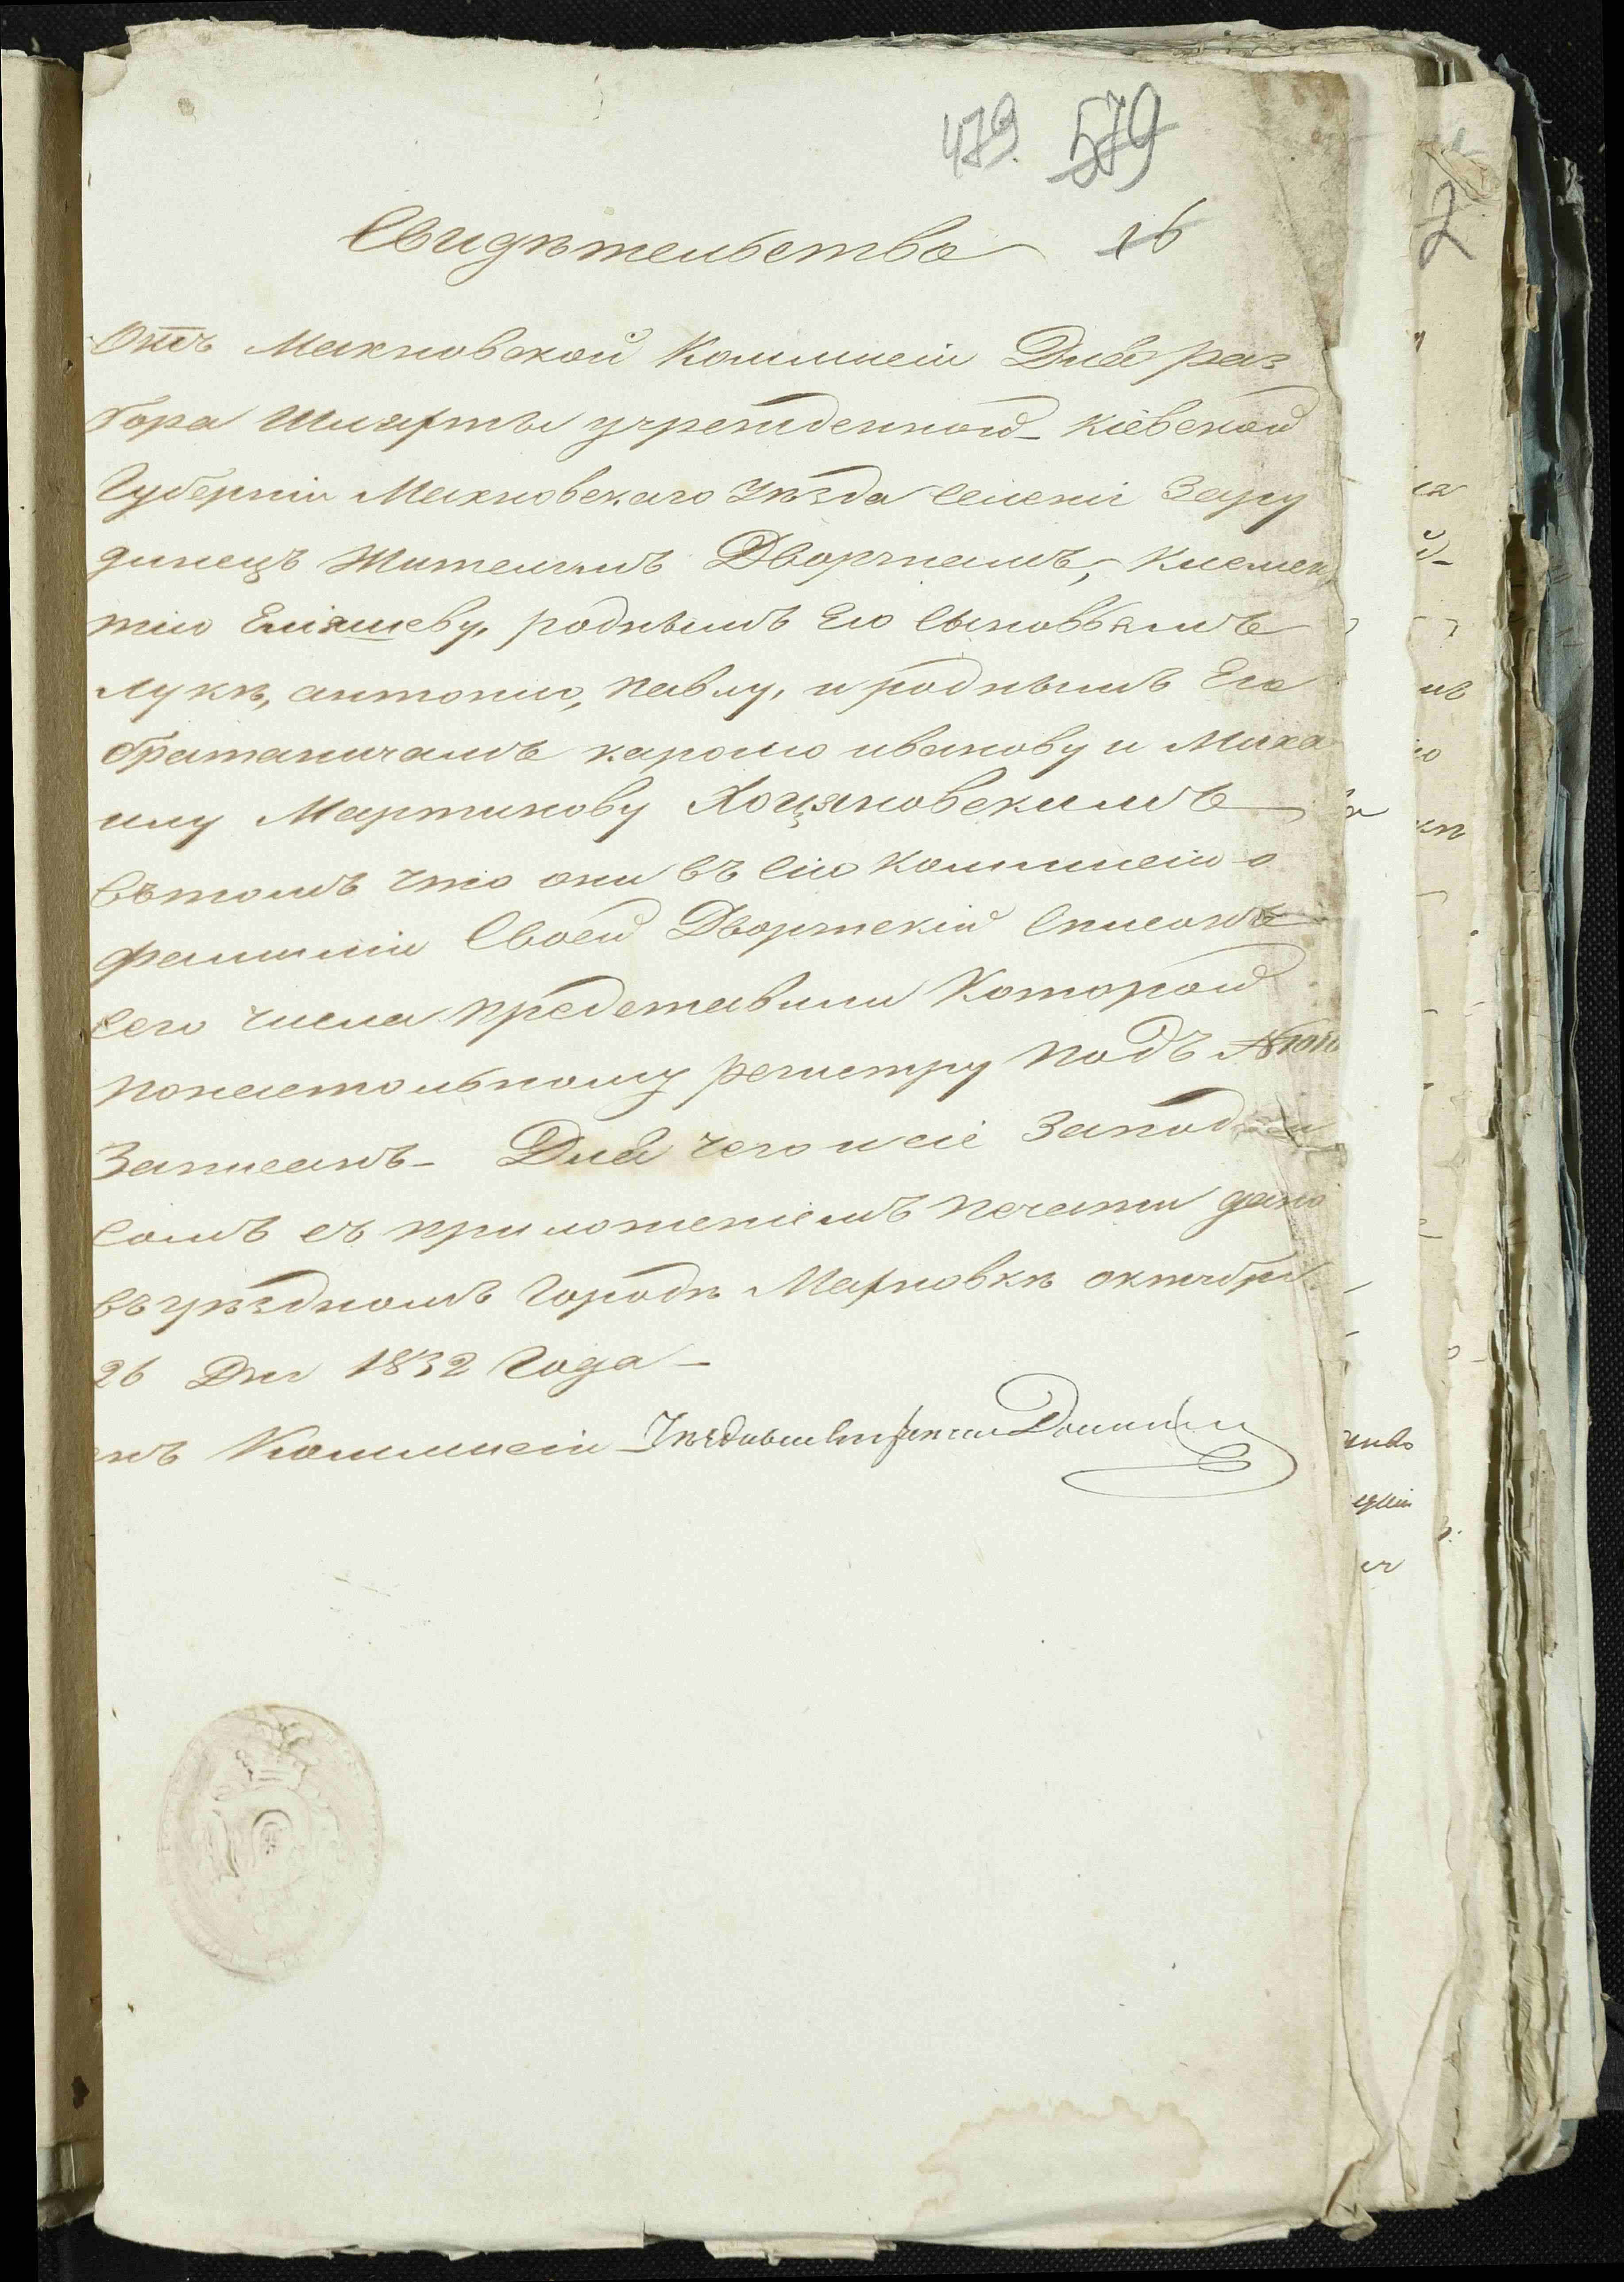 479. 579
Свидѣтельство 16
Отъ Махновской Коммисіи Для раз
бора Шляхты учрежденной - Кіевской
Губерніи Махновскаго Уѣзда Селеніі Зару
динецъ Жителямъ Дворянамъ, - Клемен
тію Еліяшеву, роднымъ Его Сыновьямъ
Лукѣ, антонію, павлу, и роднымъ Его
братаничамъ каролю иванову и Миха
илу Мартинову Хоцяновскимъ
Вътомъ что они въ Сію Коммисію о
фамиліи Своей Дворянскій Списокъ
Сего числа представили Которой
понастольному регистру подъ №
Записанъ - Для чего и сіе За подпи
сомъ съ приложеніемъ печати дано
въ уѣздномъ Городѣ Махновкѣ октября
26 Дня 1832 Года -
Коммисіи
2